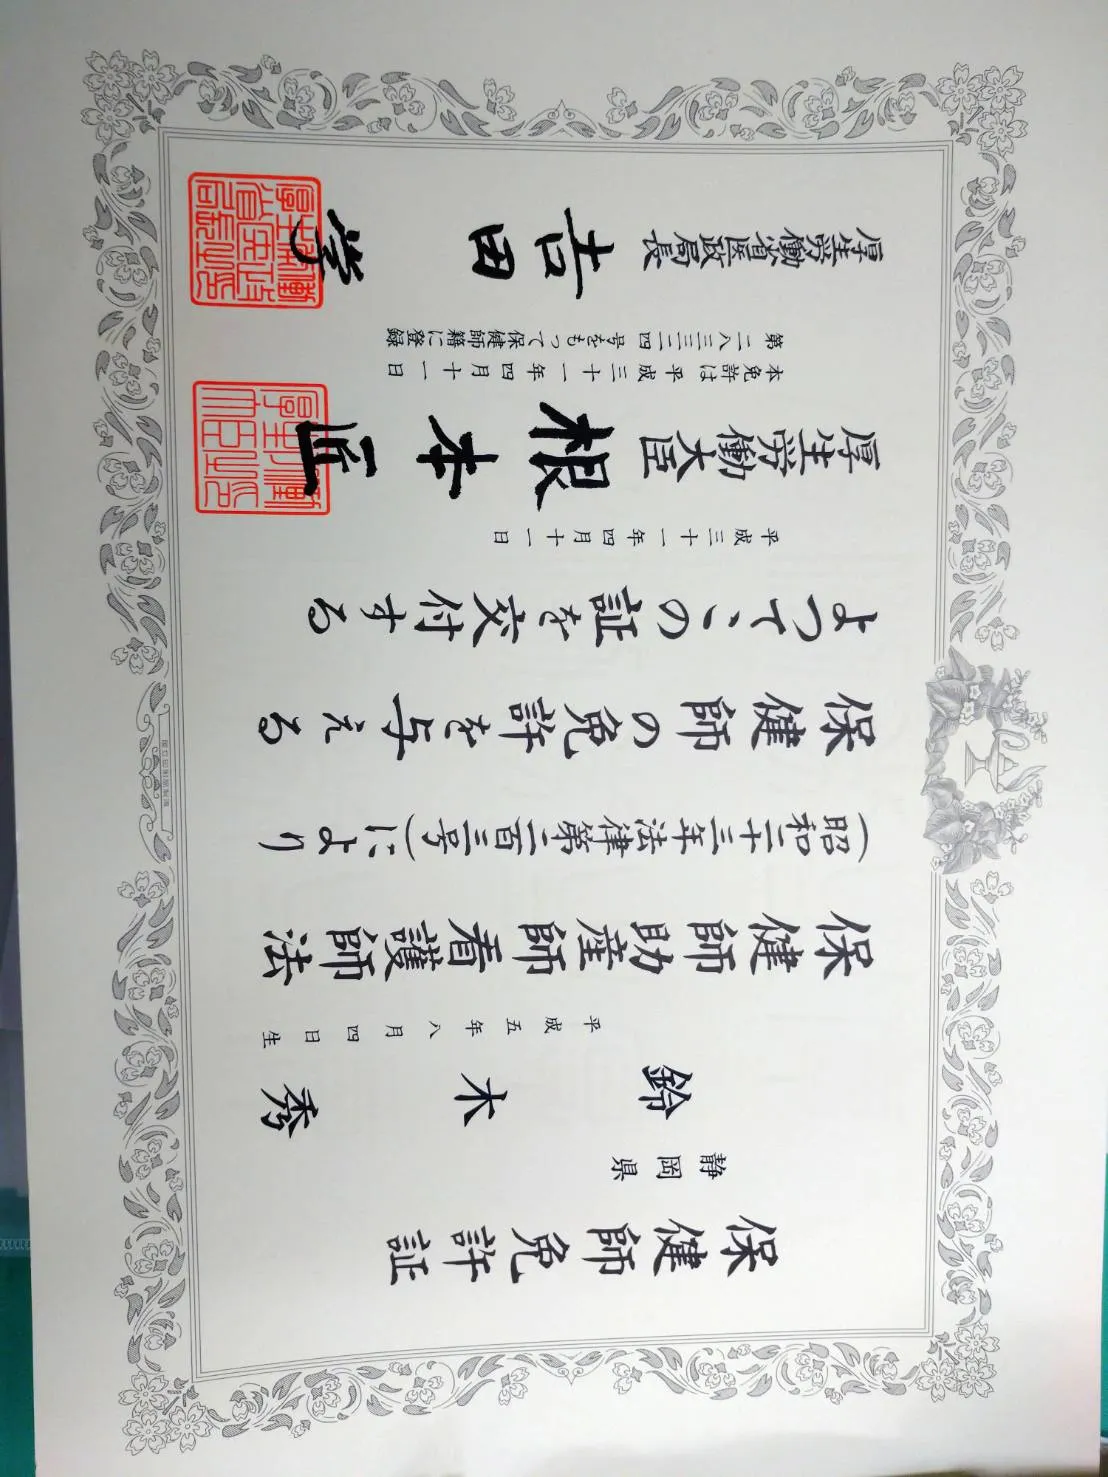 保健師免許証
静岡県
鈴木秀
平成五年八月四日生
保健師助産師看護師法
(昭和二十三年法律第二百三号)により
保健師の免許を与える
よつてこの証を交付する
平成三十一年四月十一日
厚生労働大臣 根本匠
本免許は平成三十一年四月十一日
第二八三三二四号をもつて保健師籍に登録
厚生労働省医政局長 吉田学